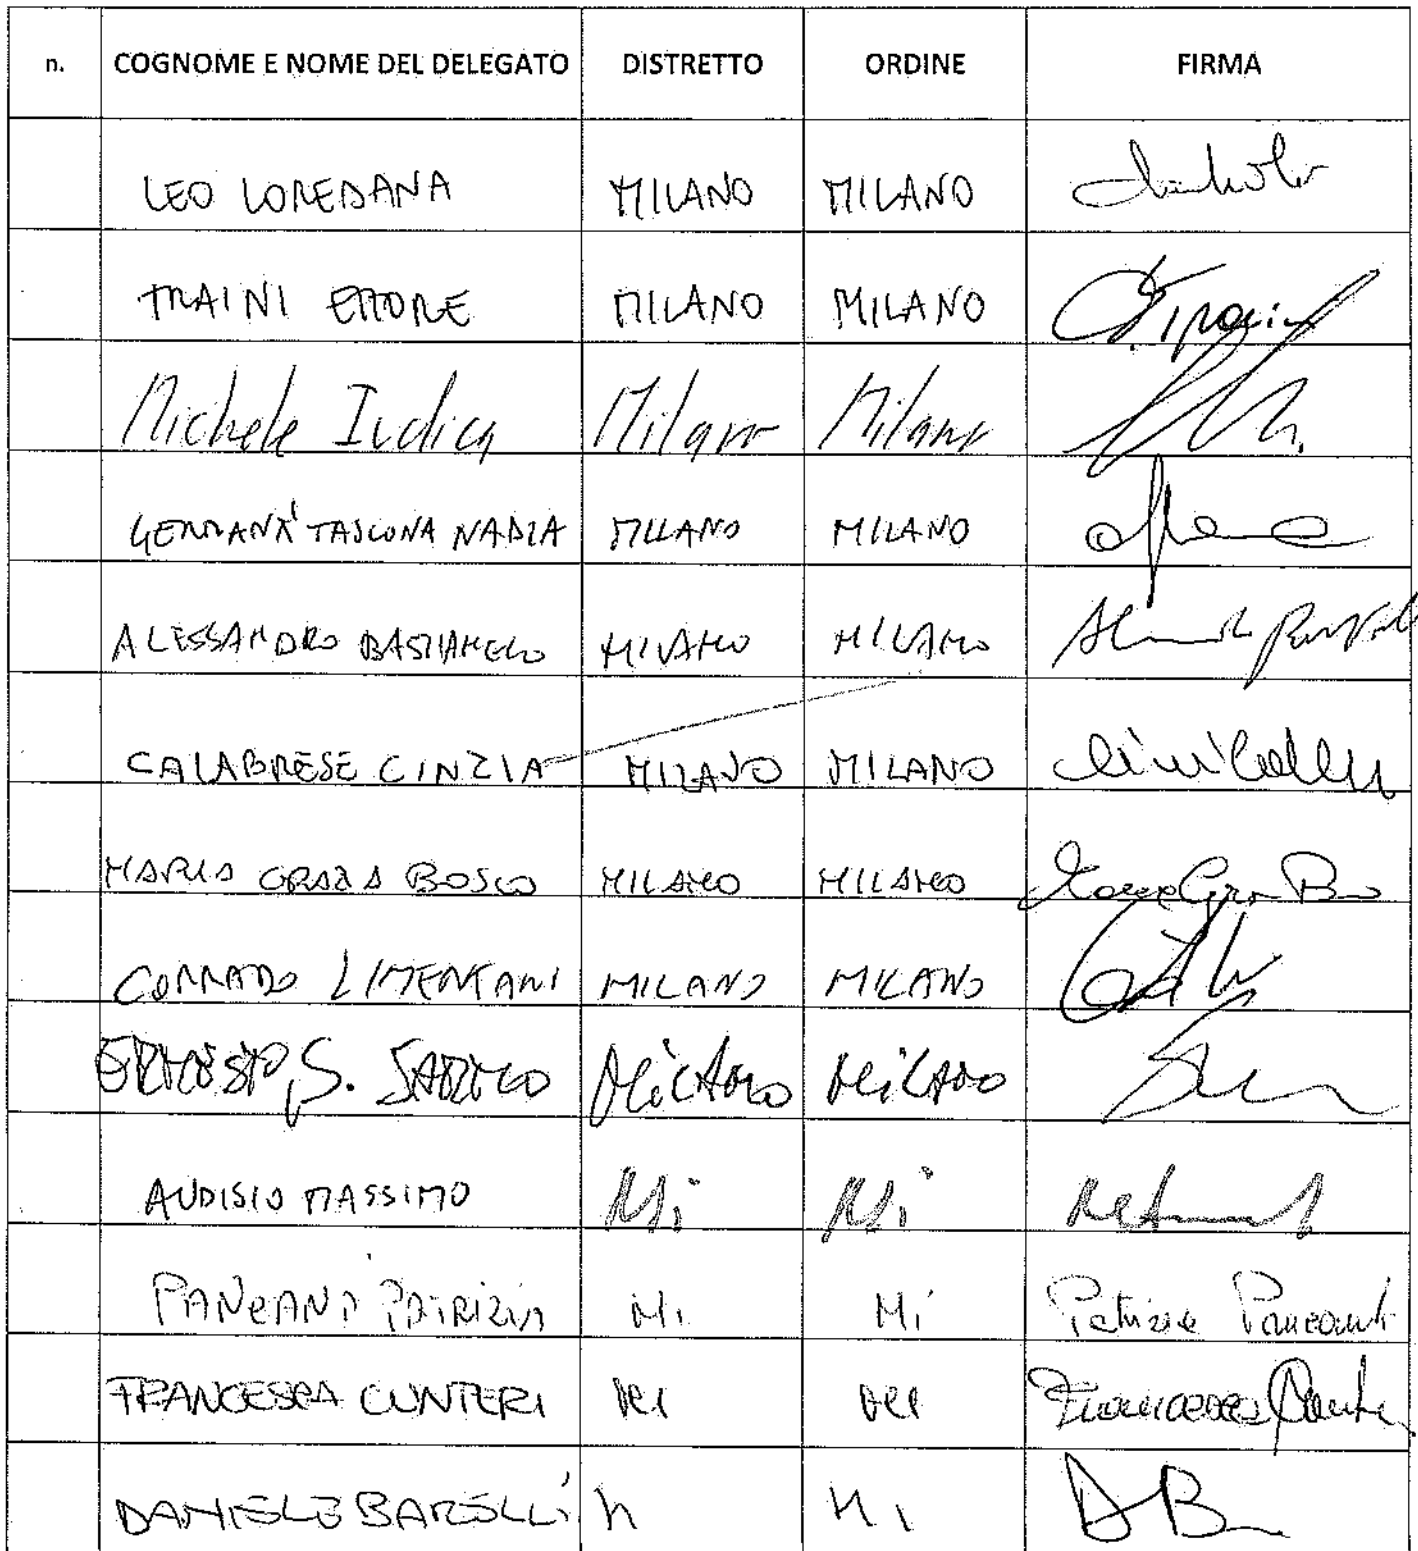 n. COGNOME E NOME DEL DELEGATO DISTRETTO ORDINE FIRMA
LEO LOREDANA MILANO MILANO
TRAINI ETTORE MILANO MILANO
Michele Iudica Milano Milano
GERMANA' TASCONA NADIA MILANO MILANO
ALESSANDRO BASTIANELLO MILANO MILANO
CALABRESE CINZIA MILANO MILANO
MARIA GRAZIA BOSCO MILANO MILANO
CORRADO LIMENTANI MILANO MILANO
S. MILANO MILANO
AUDISIO MASSIMO Mi Mi
PANCANTI PATRIZIA Mi Mi Patrizia Pancanti
FRANCESCA CUNTERI Mi Mi Francesca Cunteri
DANIELE BARELLI M Mi